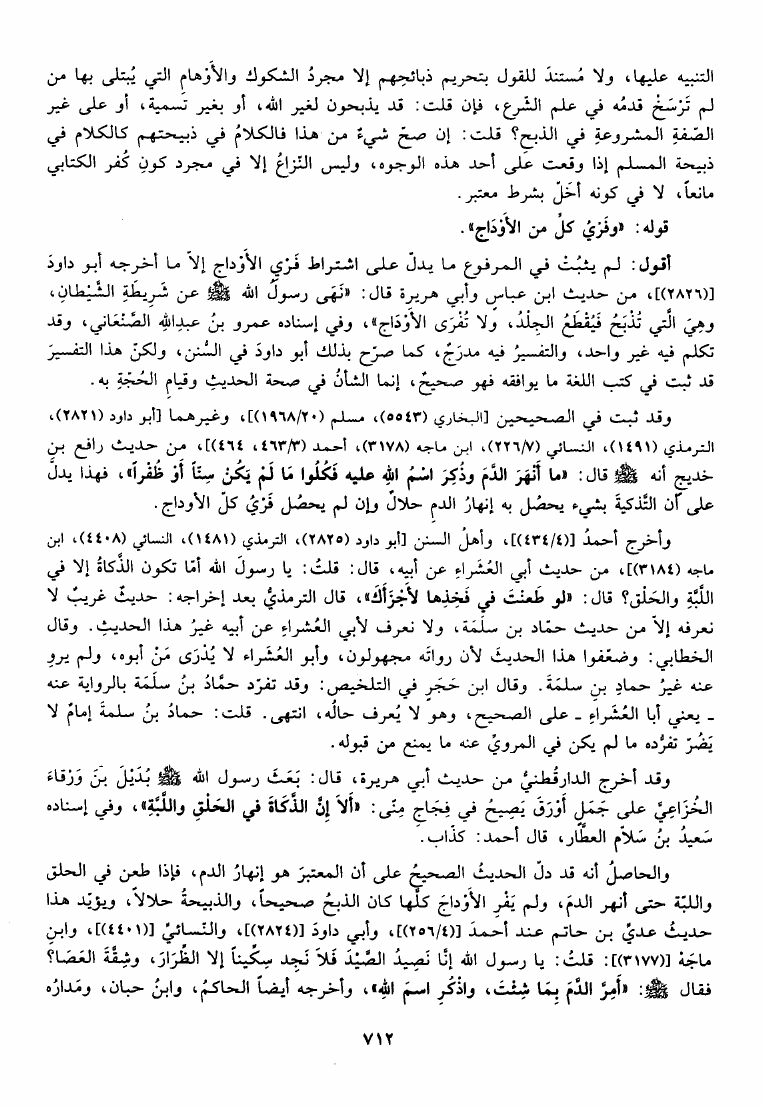 التنبيه عليها، ولا مُستندَ للقول بتحريم ذبائحِهم إلا مجردُ الشكوك والأوْهامِ التي يُبتلى بها من
لم تَرْسَخْ قدمُه في علم الشّرع، فإن قلت: قد يذبحون لغير الله، أو بغير تسمية، أو على غير
الصّفةِ المشروعةِ في الذبح؟ قلت: إن صحّ شيءٌ من هذا فالكلامُ في ذبيحتهم كالكلام في
ذبيحة المسلم إذا وقعت على أحد هذه الوجوه، وليس النّزاعُ إلا في مجرد كونِ كُفر الكتابي
مانعاً، لا في كونه أخَلّ بشرط معتبر.
قوله: «وفَرْيُ كلُ من الأوْدَاج».
أقول: لم يثبُتْ في المرفوع ما يدلّ على اشتراط فَرْي الأوْداج إلاّ ما أخرجه أبو داودَ
[(٢٨٢٦)]، من حديث ابن عباسٍ وأبي هريرة قال: «نَهَى رسولُ الله ﷺ عن شَرِيطَةِ الشَّيْطانِ،
وهِيَ الَّتي تُذْبَحُ فَيُقْطَعُ الجِلْدُ، ولا تُفْرَى الأوْدَاج»، وفي إسناده عمرو بنُ عبدِاللهِ الصَّنْعَاني، وقد
تكلم فيه غير واحد، والتفسيرُ فيه مدرَجٌ، كما صرّح بذلك أبو داودَ في السُّنن، ولكنّ هذا التفسيرَ
قد ثبت في كتب اللغة ما يوافقه فهو صحيحٌ، إنما الشأنُ في صحة الحديثِ وقيامِ الحُجّةِ به.
وقد ثبت في الصحيحين [البخاري (٥٥٤٣)، مسلم (١٩٦٨/٢٠)]، وغيرهما [أبو داود (٢٨٢١)،
الترمذي (١٤٩١)، النسائي (٢٢٦/٧)، ابن ماجه (٣١٧٨)، أحمد (٤٦٣/٣، ٤٦٤)]، من حديث رافع بنِ
خديجٍ أنه ﷺ قال: «ما أَنْهَرَ الدَّمَ وذُكِرَ اسْمُ الله عليه فَكُلُوا مَا لَمْ يَكُنْ سِنّاً أوْ ظُفْراً»، فهذا يدلّ
على أن التَّذكيةَ بشيء يحصُل به إنهارُ الدمِ حلالٌ وإن لم يحصُل فَرْيُ كلّ الأوداج.
وأخرج أحمدُ [(٤٣٤/٤)]، وأهلُ السنن [أبو داود (٢٨٢٥)، الترمذي (١٤٨١)، النسائي (٤٤٠٨)، ابن
ماجه (٣١٨٤)]، من حديث أبي العُشَراءِ عن أبيه، قال: قلتُ: يا رسولَ الله أمّا تكون الذَّكاةُ إلا في
اللَّبَّةِ والحَلْقِ؟ قال: «لو طَعنْتَ في فَخِذِها لأجْزَأَكَ»، قال الترمذيُّ بعد إخراجه: حديثٌ غريبٌ لا
نعرفه إلاّ من حديث حمّاد بن سلَمَة، ولا نعرف لأبي العُشراء عن أبيه غيرُ هذا الحديثِ. وقال
الخطابي: وضعّفوا هذا الحديثَ لأن رواتَه مجهولون، وأبو العُشَراء لا يُدْرَى مَنْ أبوه، ولم يروِ
عنه غيرُ حمادِ بنِ سلمَةَ. وقال ابن حَجَرٍ في التلخيص: وقد تفرّد حمَّادُ بنُ سلَمة بالرواية عنه
ـ يعني أبا العُشَراءِ ـ على الصحيح، وهو لا يُعرف حالُه، انتهى. قلت: حمادُ بنُ سلمةَ إمامٌ لا
يَضُرّ تفرُّده ما لم يكن في المرويِّ عنه ما يمنع من قبوله.
وقد أخرج الدارقطنيُّ من حديث أبي هريرة، قال: بَعَثَ رسول الله ﷺ بُدَيْلَ بنَ وَرْقاءَ
الخُزَاعِيَّ على جَمَلٍ أوْرَقَ يَصِيحُ في فِجَاجِ مِنًى: «ألاَ إنَّ الذَّكَاةَ في الحَلْقِ واللَّبَّةِ»، وفي إسناده
سَعيدُ بنُ سَلاّم العطَّار، قال أحمد: كذّاب.
والحاصلُ أنه قد دلّ الحديثُ الصحيحُ على أن المعتبرَ هو إنهارُ الدم، فإذا طعن في الحلق
واللبّة حتى أنهر الدمَ، ولم يَفْرِ الأوْداجَ كلَّها كان الذبحُ صحيحاً، والذبيحةُ حلالاً، ويؤيّد هذا
حديثُ عديِّ بن حاتم عند أحمدَ [(٢٥٦/٤)]، وأبي داودَ [(٢٨٢٤)]، والنَّسائيِّ [(٤٤٠١)]، وابنِ
ماجَهْ [(٣١٧٧)]: قلتُ: يا رسول الله إنَّا نَصِيدُ الصَّيْدَ فَلاَ نَجِد سِكِّيناً إلا الظِّرَارَ، وشِقَّةَ العَصَا؟
فقال ﷺ: «أَمِرَّ الدَّمَ بِمَا شِئْتَ، واذْكُرِ اسمَ اللهِ»، وأخرجه أيضاً الحاكمُ، وابنُ حبان، ومَدارُه
٧١٢